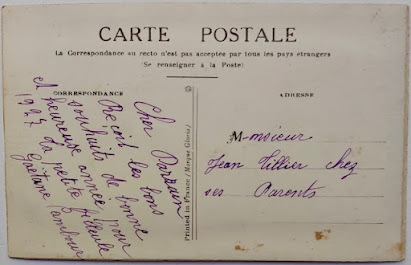 CARTE POSTALE
La Correspondance au recto n'est pas acceptée par tous les pays étrangers
(Se renseigner à la Poste)
CORRESPONDANCE
Cher Parrain
Reçoit les bons
souhaits de bonne
et heureuse année pour
1927 ta petite filleule
Printed in France (Marque Gloria)
ADRESSE
Monsieur
Jean Tillier chez
ses Parents